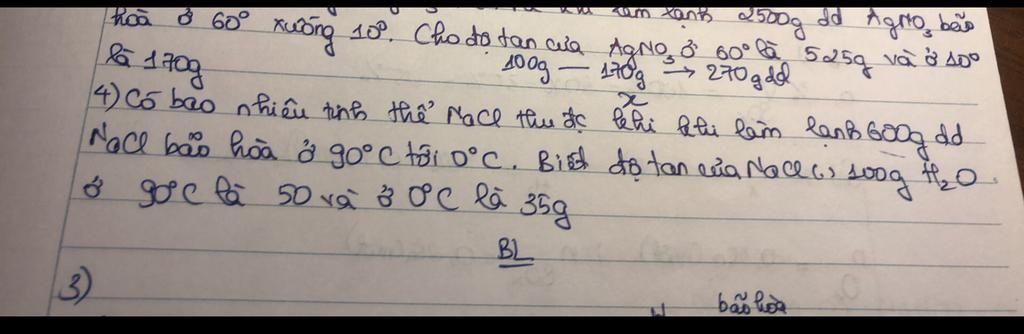 hoà ở 60° xuống 10°. Cho độ tan của AgNO3 ở 60° là 525g và ở 10°
2500g dd AgNO3 bão
là 170g
100g — 170g → 270g dd
x
4) Có bao nhiêu tinh thể NaCl thu đc khi khi làm lạnh 600g dd
NaCl bão hòa ở 90°C tới 0°C. Biết độ tan của NaCl (,) 100g H2O
ở 90°C là 50 và ở 0°C là 35g
BL
3)
bão hòa